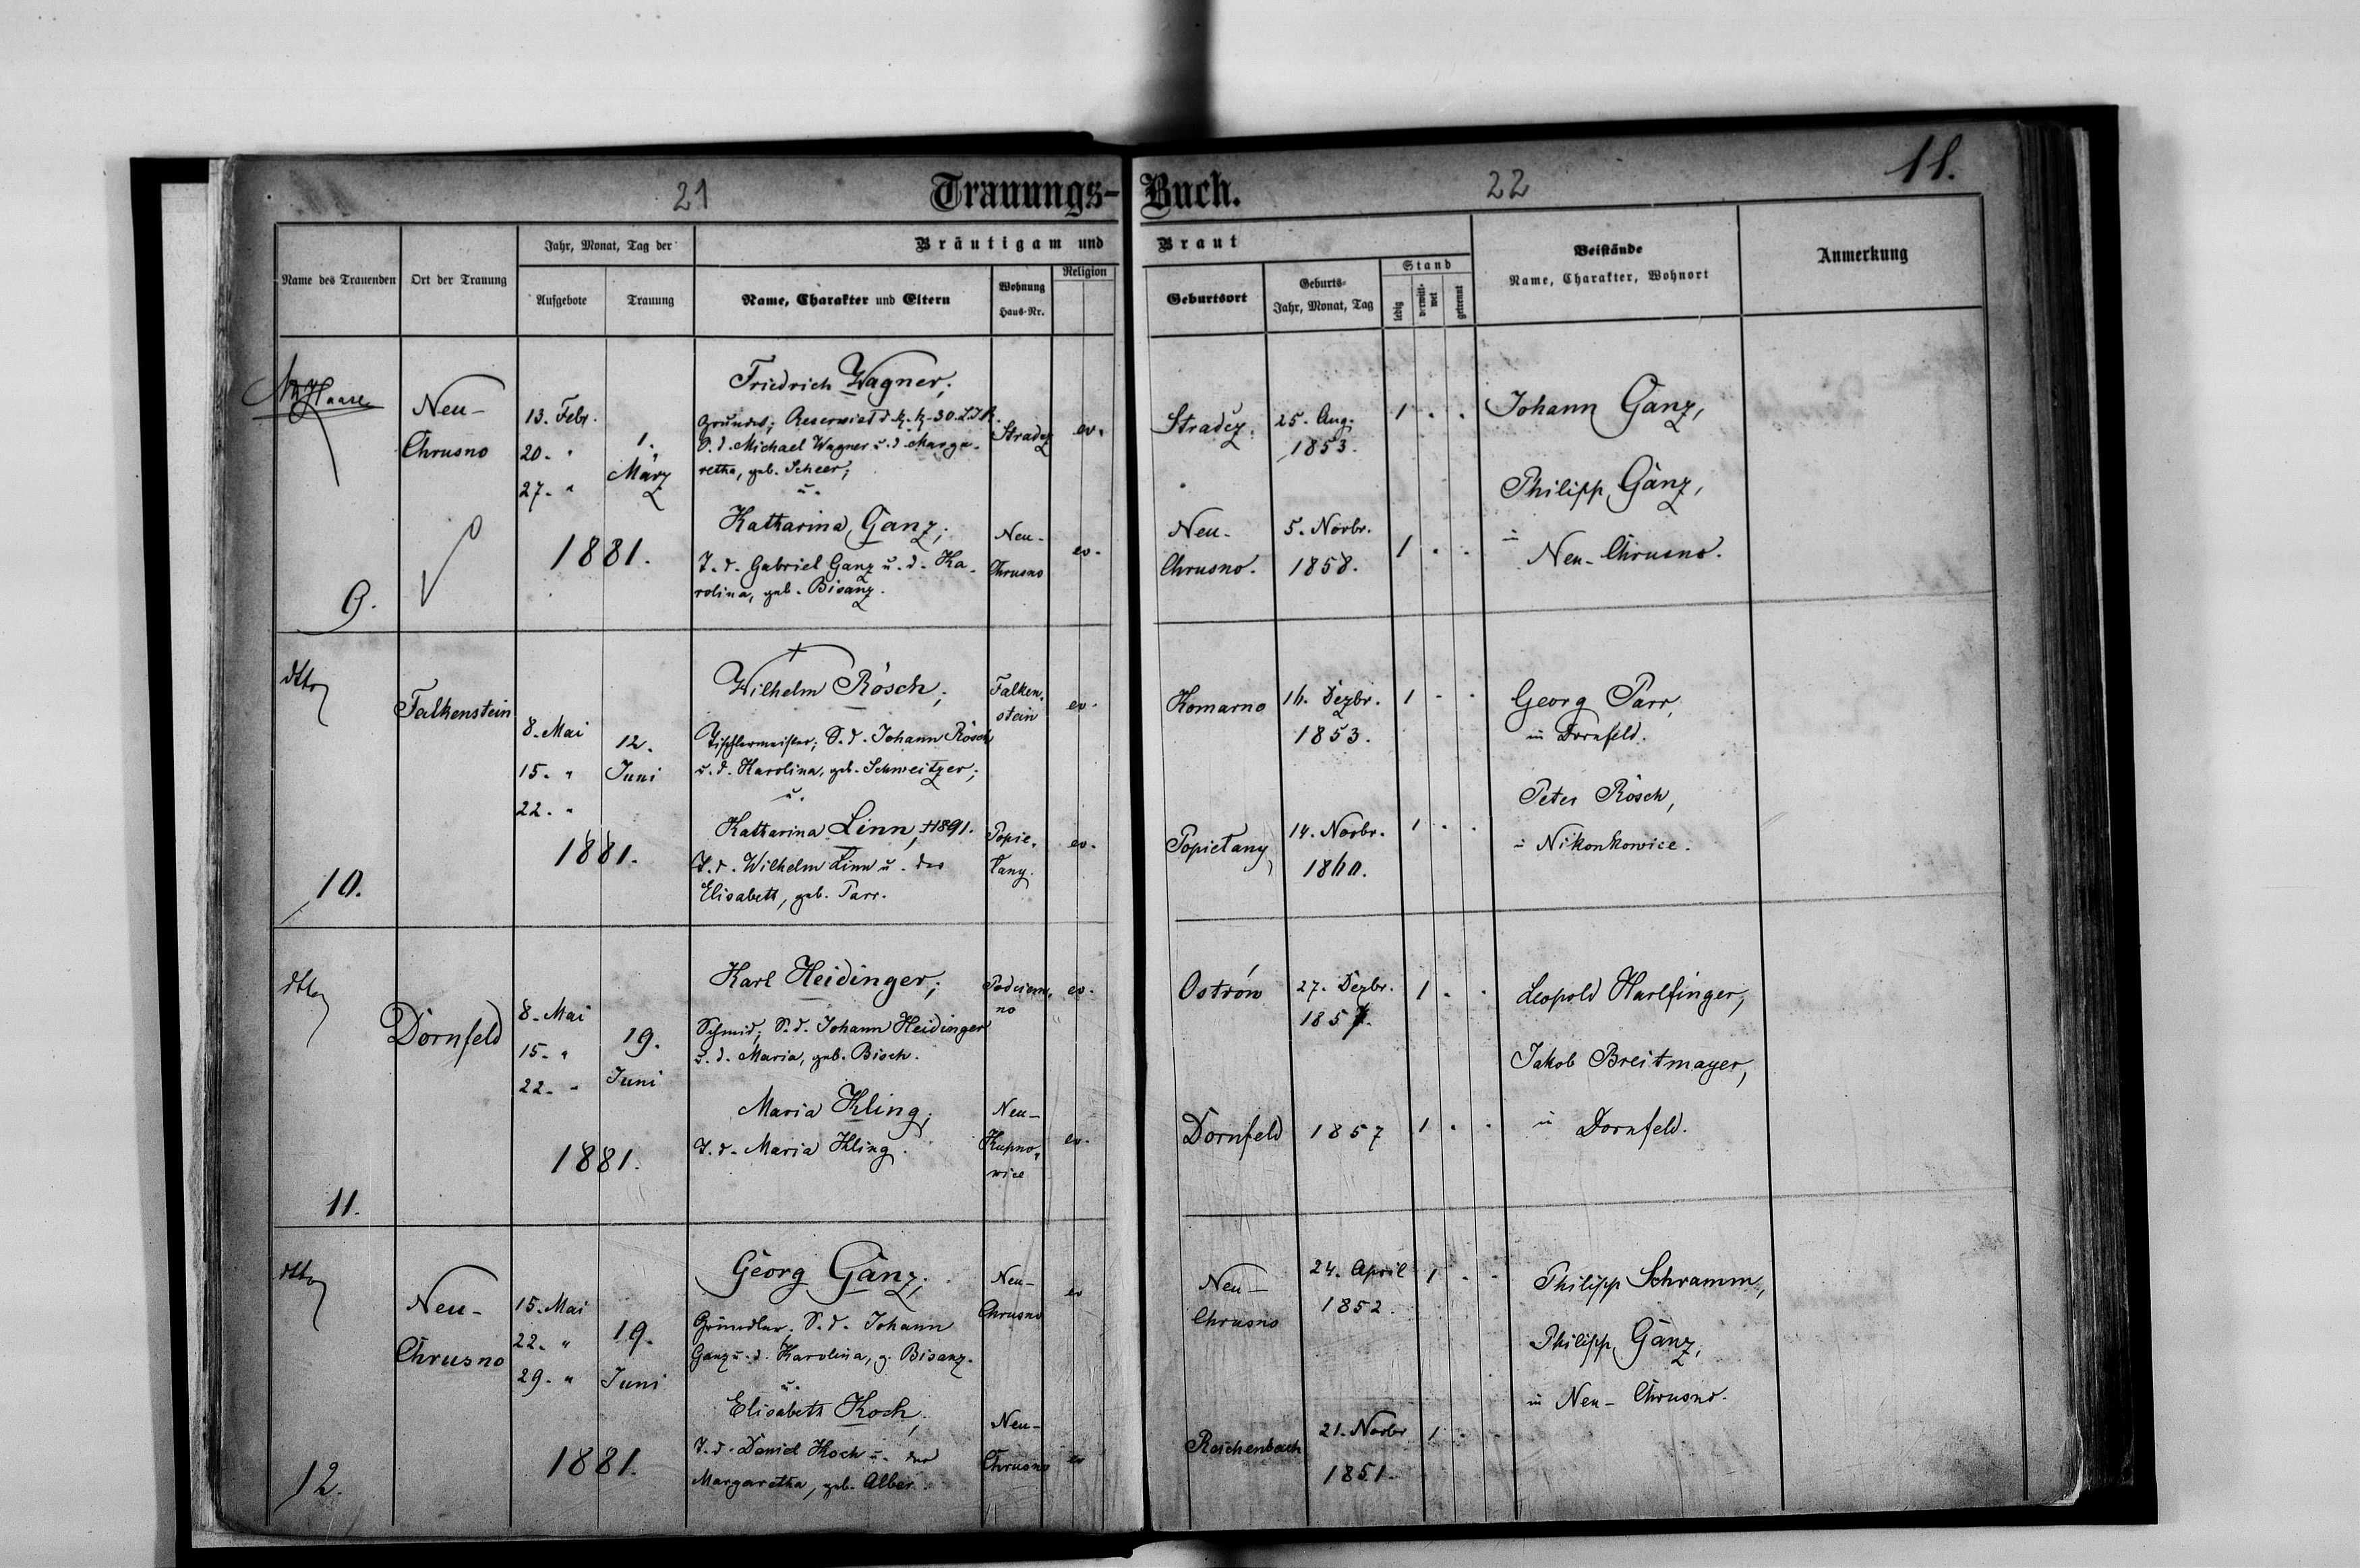 21
Trauungs-Buch.
22
11.
Name des Trauenden
Ort der Trauung
Jahr, Monat, Tag der
Aufgebote
Trauung
Bräutigam und Braut
Name, Charakter und Eltern
Wohnung
Haus-Nr.
Religion
Geburtsort
Geburts-
Jahr, Monat, Tag
Stand
ledig
verwitt-
wet
getrennt
Beistände
Name, Charakter, Wohnort
Anmerkung
Haase
9.
Neu-
Chrusno
13. Febr.
20. "
27. "
1.
März
1881.
Friedrich Wagner;
Grundw; Reservist d. k. k. 30. L.I.R.
S. d. Michael Wagner u. d. Marga-
retha, geb. Scheer;
u.
Katharina Ganz;
T. d. Gabriel Ganz u. d. Ka-
rolina, geb. Bisanz.
Stradcz
ev.
Neu-
Chrusno
ev.
Stradcz.
25. Aug.
1853.
1 . .
Neu-
Chrusno.
5. Novbr.
1858.
1 . .
Johann Ganz,
Philipp Ganz,
in
Neu-Chrusno.
dtto
10.
Falkenstein
8. Mai
15. "
22. "
12.
Juni
1881.
Wilhelm Rösch;
Tischlermeister; S. d. Johann Rösch
u. d. Karolina, geb. Schweitzer;
u.
Katharina Linn, †1891.
T. d. Wilhelm Linn u. der
Elisabeth, geb. Parr.
Falken-
stein
ev.
Popie-
lany.
ev.
Komarno
16. Dezbr.
1853.
1 . .
Popielany
14. Novbr.
1860.
1 . .
Georg Parr,
in Dornfeld.
Peter Rösch,
in Nikonkowice.
dtto
11.
Dornfeld
8. Mai
15. "
22. "
19.
Juni
1881.
Karl Heidinger;
Schmid; S. d. Johann Heidinger
u. d. Maria, geb. Bisch.
Maria Kling;
T. d. Maria Kling.
Podciem-
no
ev.
Neu-
Kupno-
wice
ev.
Ostrów
27. Dezbr.
1857.
1 . .
Dornfeld
1857
1 . .
Leopold Harlfinger,
Jakob Breitmayer,
in Dornfeld.
dtto
12.
Neu-
Chrusno
15. Mai
22. "
29. "
19.
Juni
1881.
Georg Ganz;
Grundw. S. d. Johann
Ganz u. d. Karolina, g. Bisanz.
u.
Elisabeth Koch,
T. d. Daniel Koch u. der
Margaretha, geb. Alber.
Neu-
Chrusno
ev
Neu-
Chrusno
ev
Neu-
Chrusno
24. April
1852.
1 . .
Reichenbach
21. Novbr
1851.
1 . .
Philipp Schramm,
Philipp Ganz,
in Neu-Chrusno.